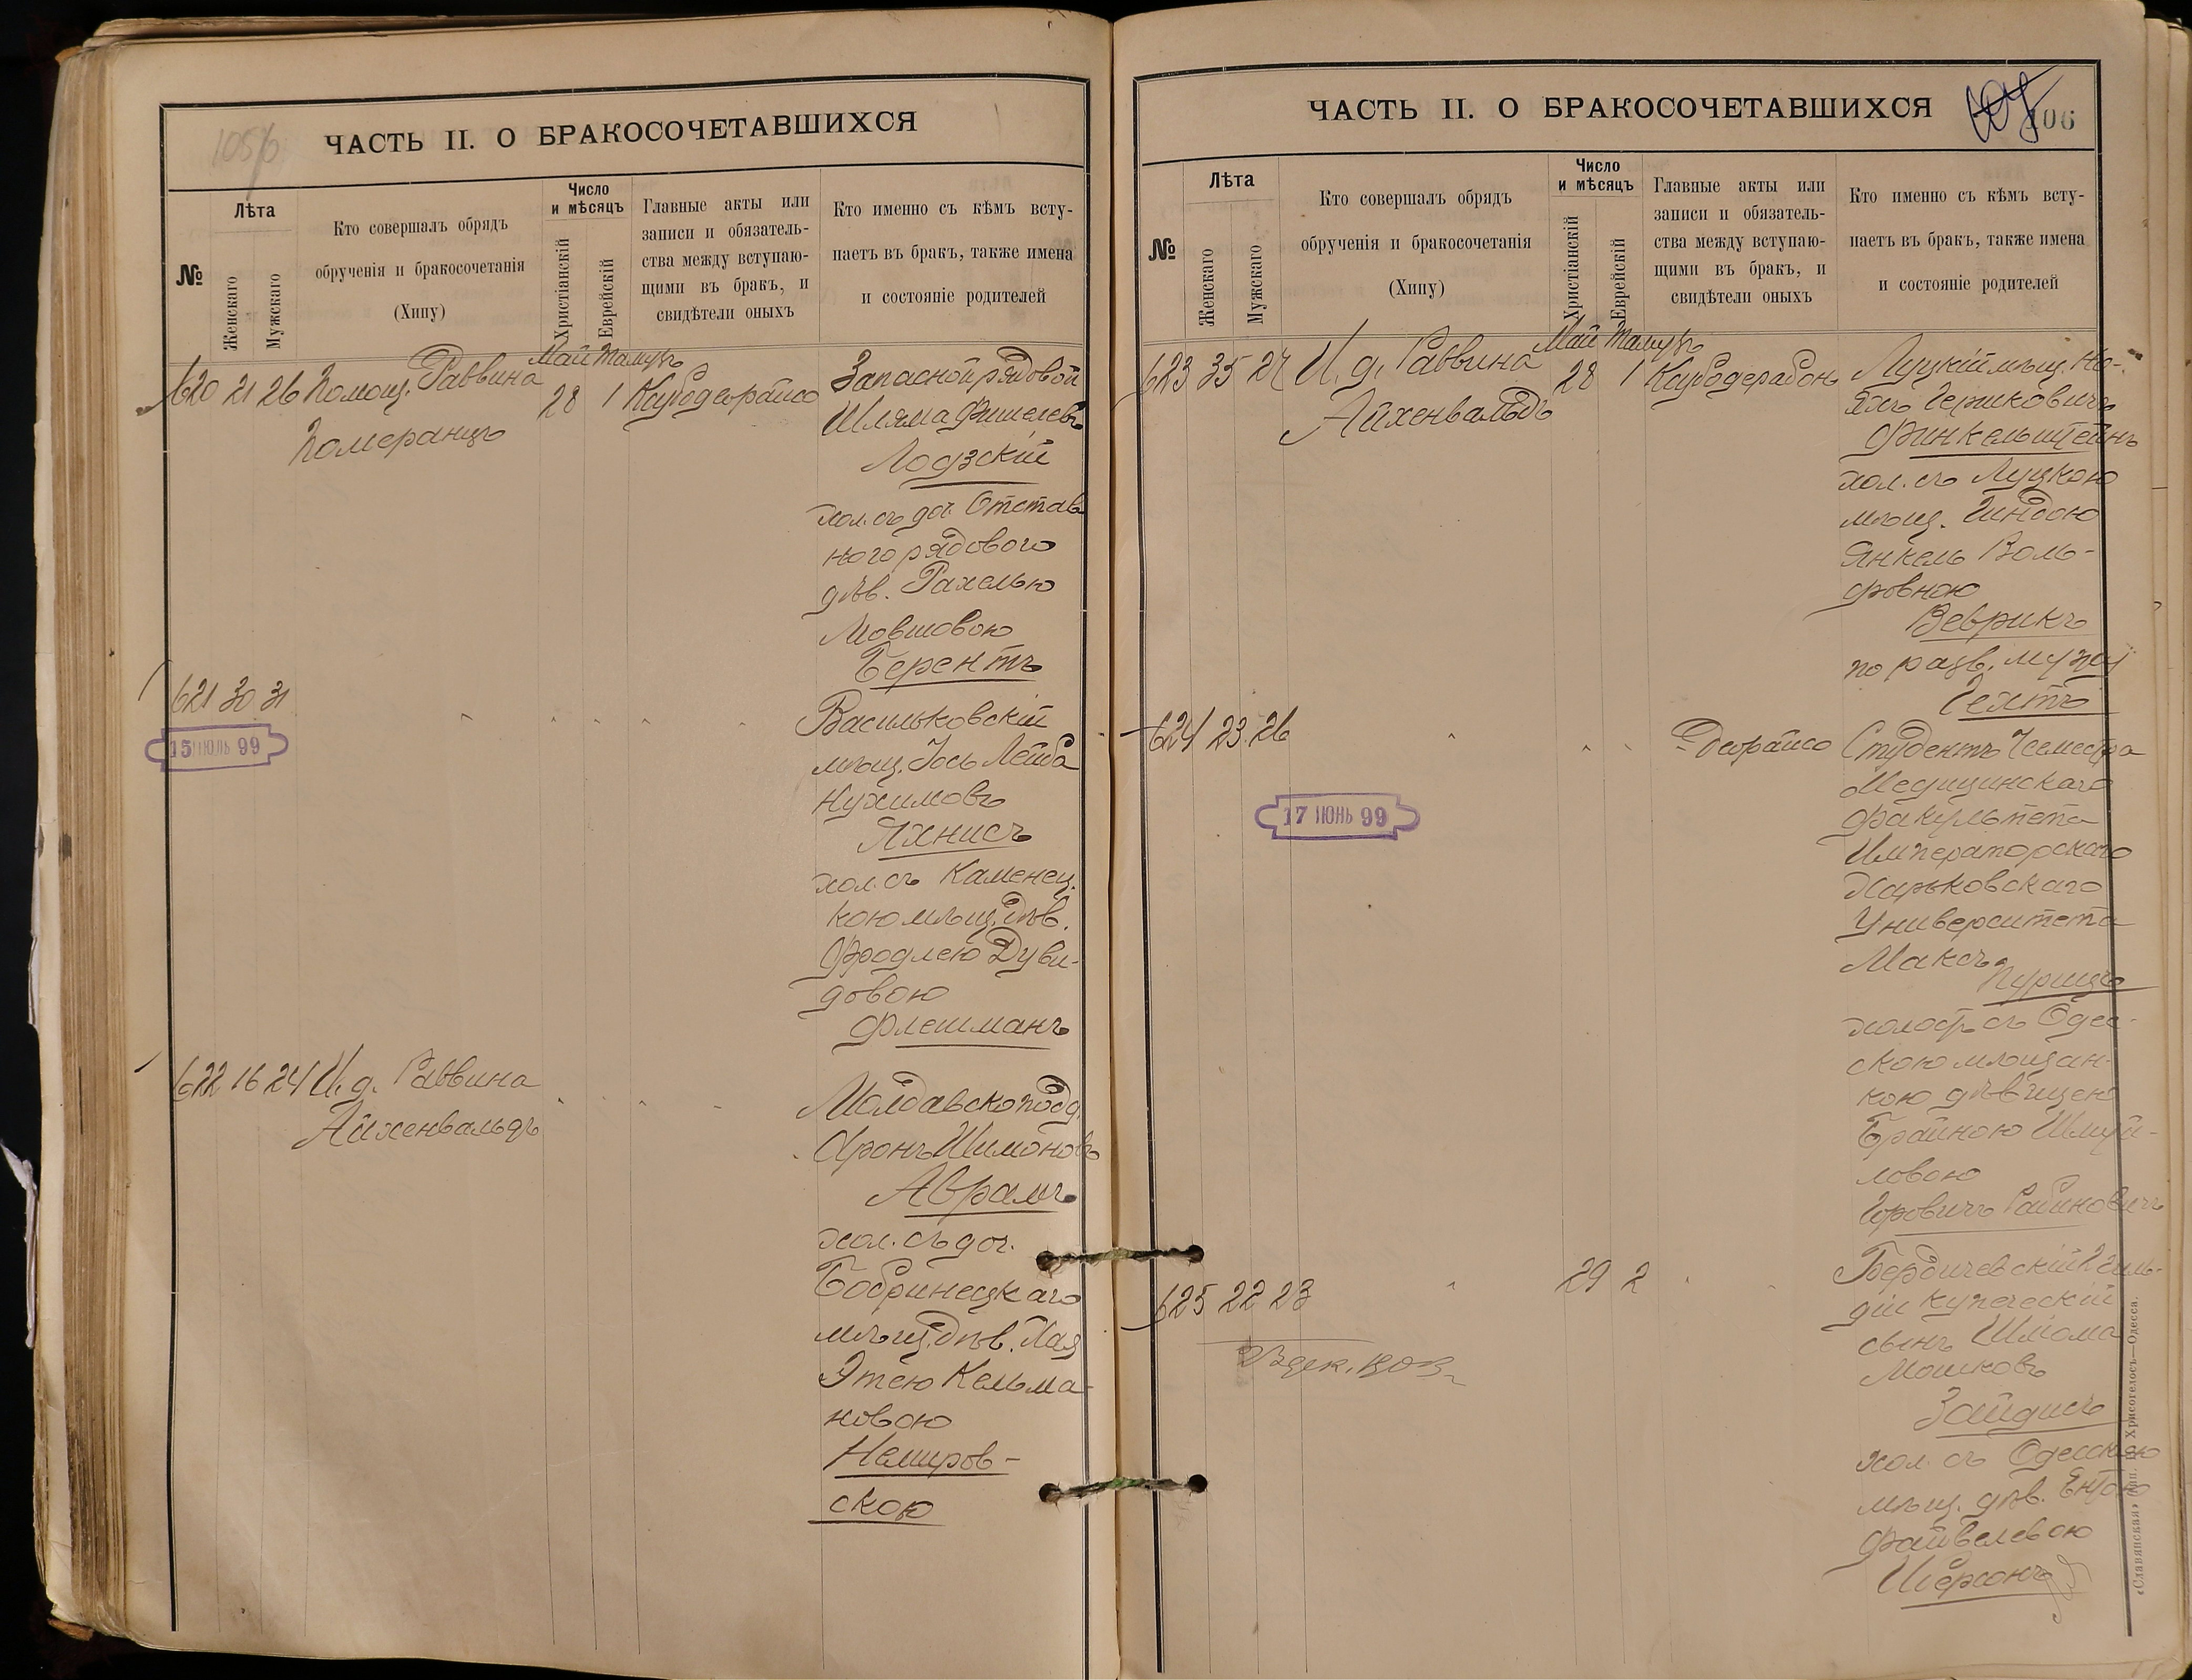 105/б
ЧАСТЬ II. О БРАКОСОЧЕТАВШИХСЯ
№
Лѣта
Женскаго
Мужскаго
Кто совершалъ обрядъ
обрученія и бракосочетанія
(Хипу)
Число
и мѣсяцъ
Христіанскій
Еврейскій
Главные акты или
записи и обязатель-
ства между вступаю-
щими въ бракъ, и
свидѣтели оныхъ
Кто именно съ кѣмъ всту-
паетъ въ бракъ, также имена
и состояніе родителей
Май Тамузъ
620 21 26 Помощ. Раввина 28 1
Померанцъ
Запасной рядовой
Шляма Фишелевъ
Лодзскій
хол. съ доч. Отстав
ного рядового
дѣв. Рахелью
Мовшовою
Берентъ
621 30 31
15 ИЮЛЬ 99
Васильковскій
мѣщ. Іось Лейба
Нухимовъ
Яхнисъ
хол. съ Каменец.
кою мѣщ. дѣв.
Фродлею Дуви-
довою
Флешманъ
622 16 24 И. д. Раввина
Айхенвальдъ
Молдавскоподд.
Аронъ Шимоновъ
Аврамъ
хол. съ доч.
Бобринецкаго
мѣщ. дѣв. Хая
Этею Кельма-
новою
Немиров-
скою
ЧАСТЬ II. О БРАКОСОЧЕТАВШИХСЯ
106
№
Лѣта
Женскаго
Мужскаго
Кто совершалъ обрядъ
обрученія и бракосочетанія
(Хипу)
Число
и мѣсяцъ
Христіанскій
Еврейскій
Главные акты или
записи и обязатель-
ства между вступаю-
щими въ бракъ, и
свидѣтели оныхъ
Кто именно съ кѣмъ всту-
паетъ въ бракъ, также имена
и состояніе родителей
Май Тамузъ
623 35 27 И. д. Раввина 28 1
Айхенвальдъ
Луцкій мѣщ. Но-
яхъ Гершковичъ
Финкельштейнъ
хол. съ Луцкою
мѣщ. Гиндою
Янкель Воль-
фовною
Веврикъ
по разв. мужу
Гехтъ
624 23 26 Деорайсо
17 ИЮНЬ 99
Студентъ семестра
Медицинскаго
факультета
Императорскаго
Харьковскаго
Университета
Максъ
Пурицъ
холост. съ Одес-
скою мѣщан-
кою дѣвицею
Брайною Шмуй-
ловою
Гуровичъ Рабиновичъ
625 22 23 29 2
Бердичевскій 2 гиль-
діи купеческій
сынъ Шлiома
Мошковъ
Зайдисъ
хол. съ Одесскою
мѣщ. дѣв. Ентою
Файвелевою
«Славянская» тип. Н. Хрисогелосъ—Одесса.